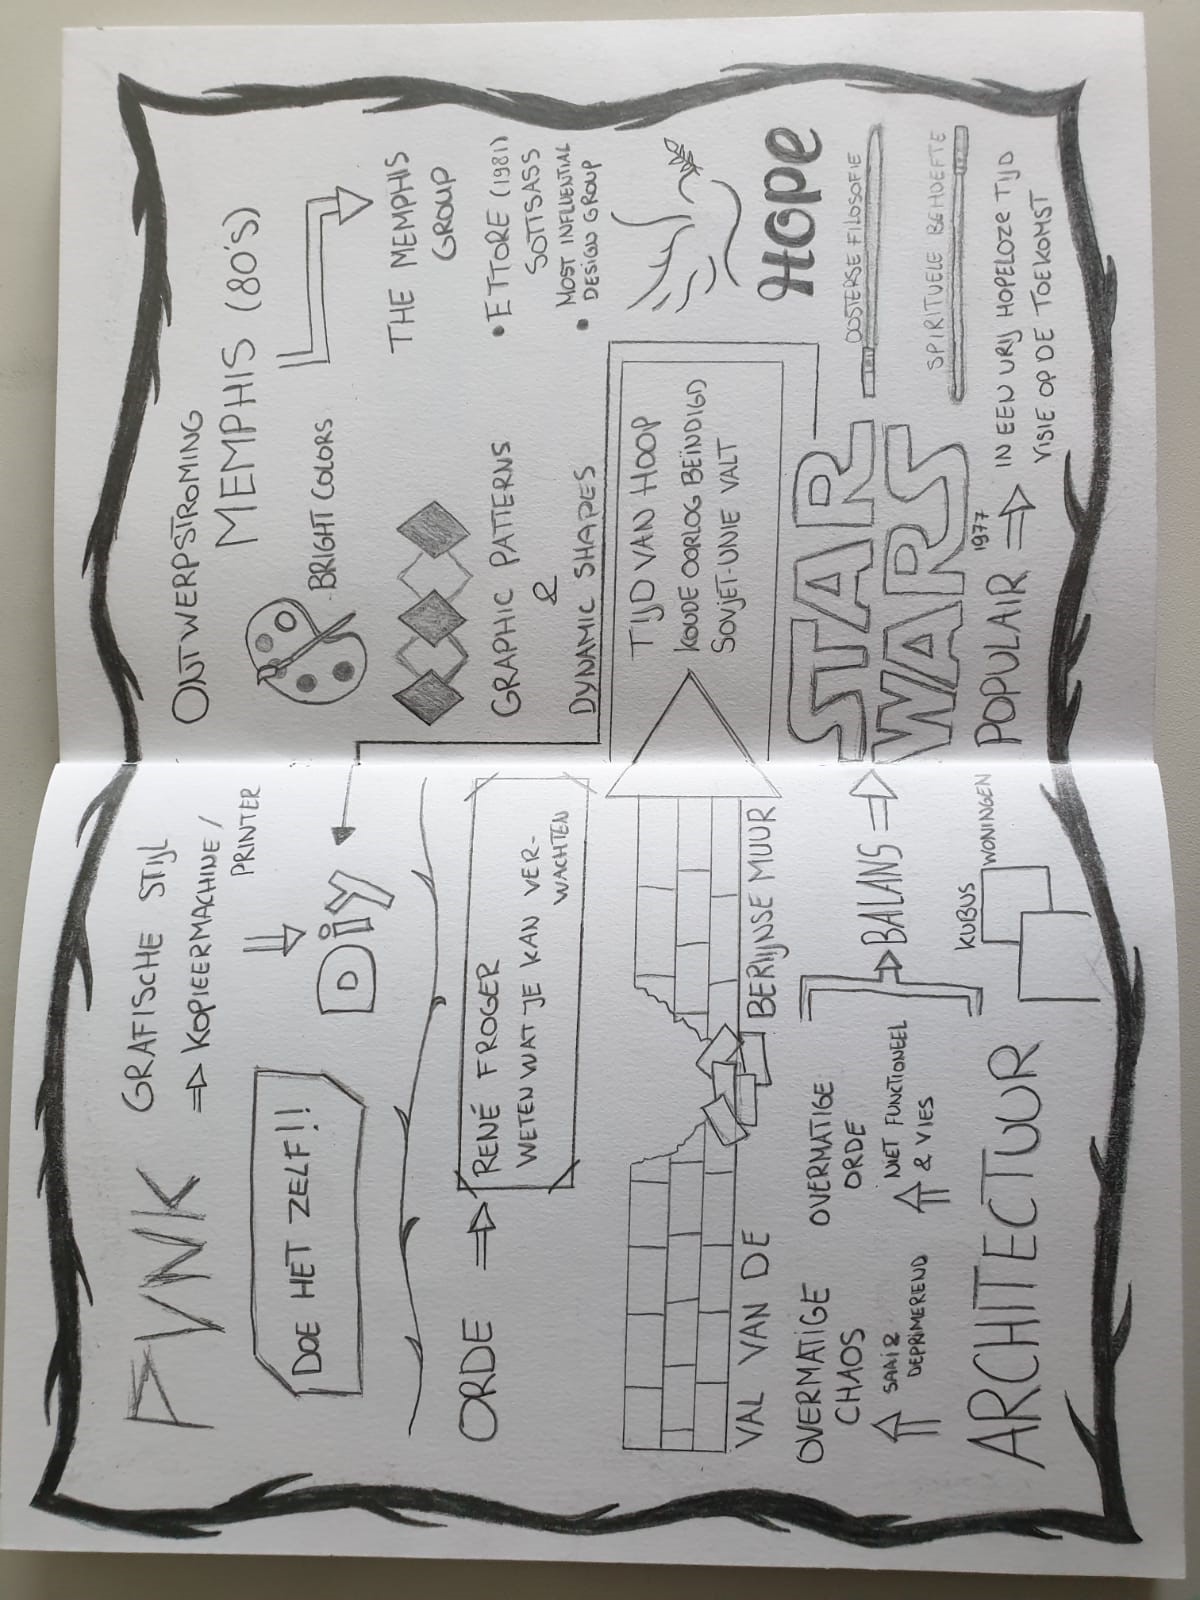 PUNK
GRAFISCHE STIJL
⇒ KOPIEERMACHINE /
PRINTER
DOE HET ZELF!!
DIY
ORDE ⇒ RENÉ FROGER
WETEN WAT JE KAN VER-
WACHTEN
VAL VAN DE BERLIJNSE MUUR
OVERMATIGE
CHAOS
OVERMATIGE
ORDE
BALANS ⇒
SAAI &
DEPRIMEREND
NIET FUNCTIONEEL
& VIES
ARCHITECTUUR
KUBUS
WONINGEN
ONTWERPSTROMING
MEMPHIS (80'S)
BRIGHT COLORS
THE MEMPHIS
GROUP
GRAPHIC PATTERNS
&
DYNAMIC SHAPES
• ETTORE (1981)
SOTTSASS
• MOST INFLUENTIAL
DESIGN GROUP
TIJD VAN HOOP
KOUDE OORLOG BEËINDIGD
SOVJET-UNIE VALT
Hope
STAR
WARS
1977
OOSTERSE FILOSOFIE
SPIRITUELE BEHOEFTE
POPULAIR ⇒ IN EEN VRIJ HOPELOZE TIJD
VISIE OP DE TOEKOMST